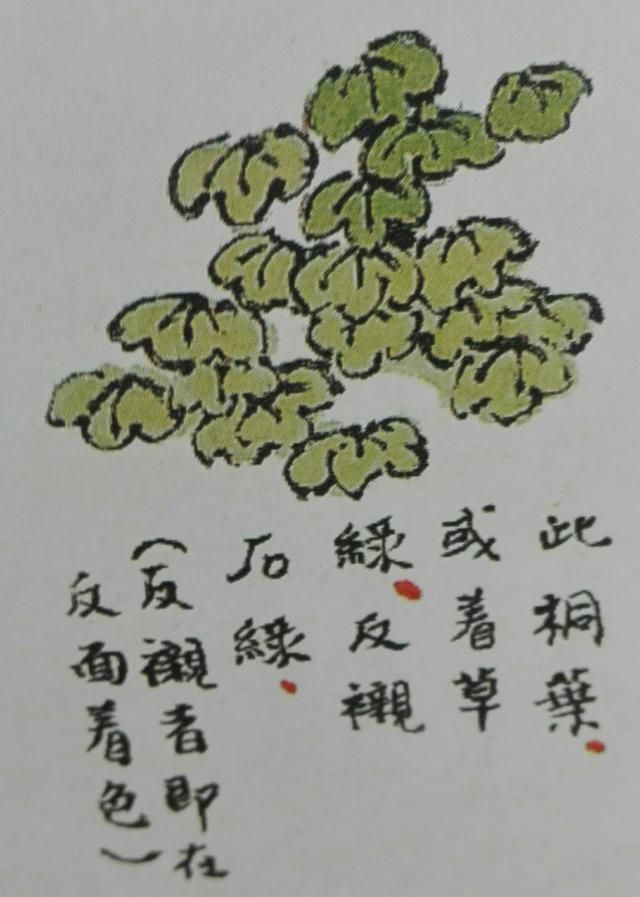 此桐葉。
或着草
綠。反襯
石綠。
(反襯者即在
反面着色)